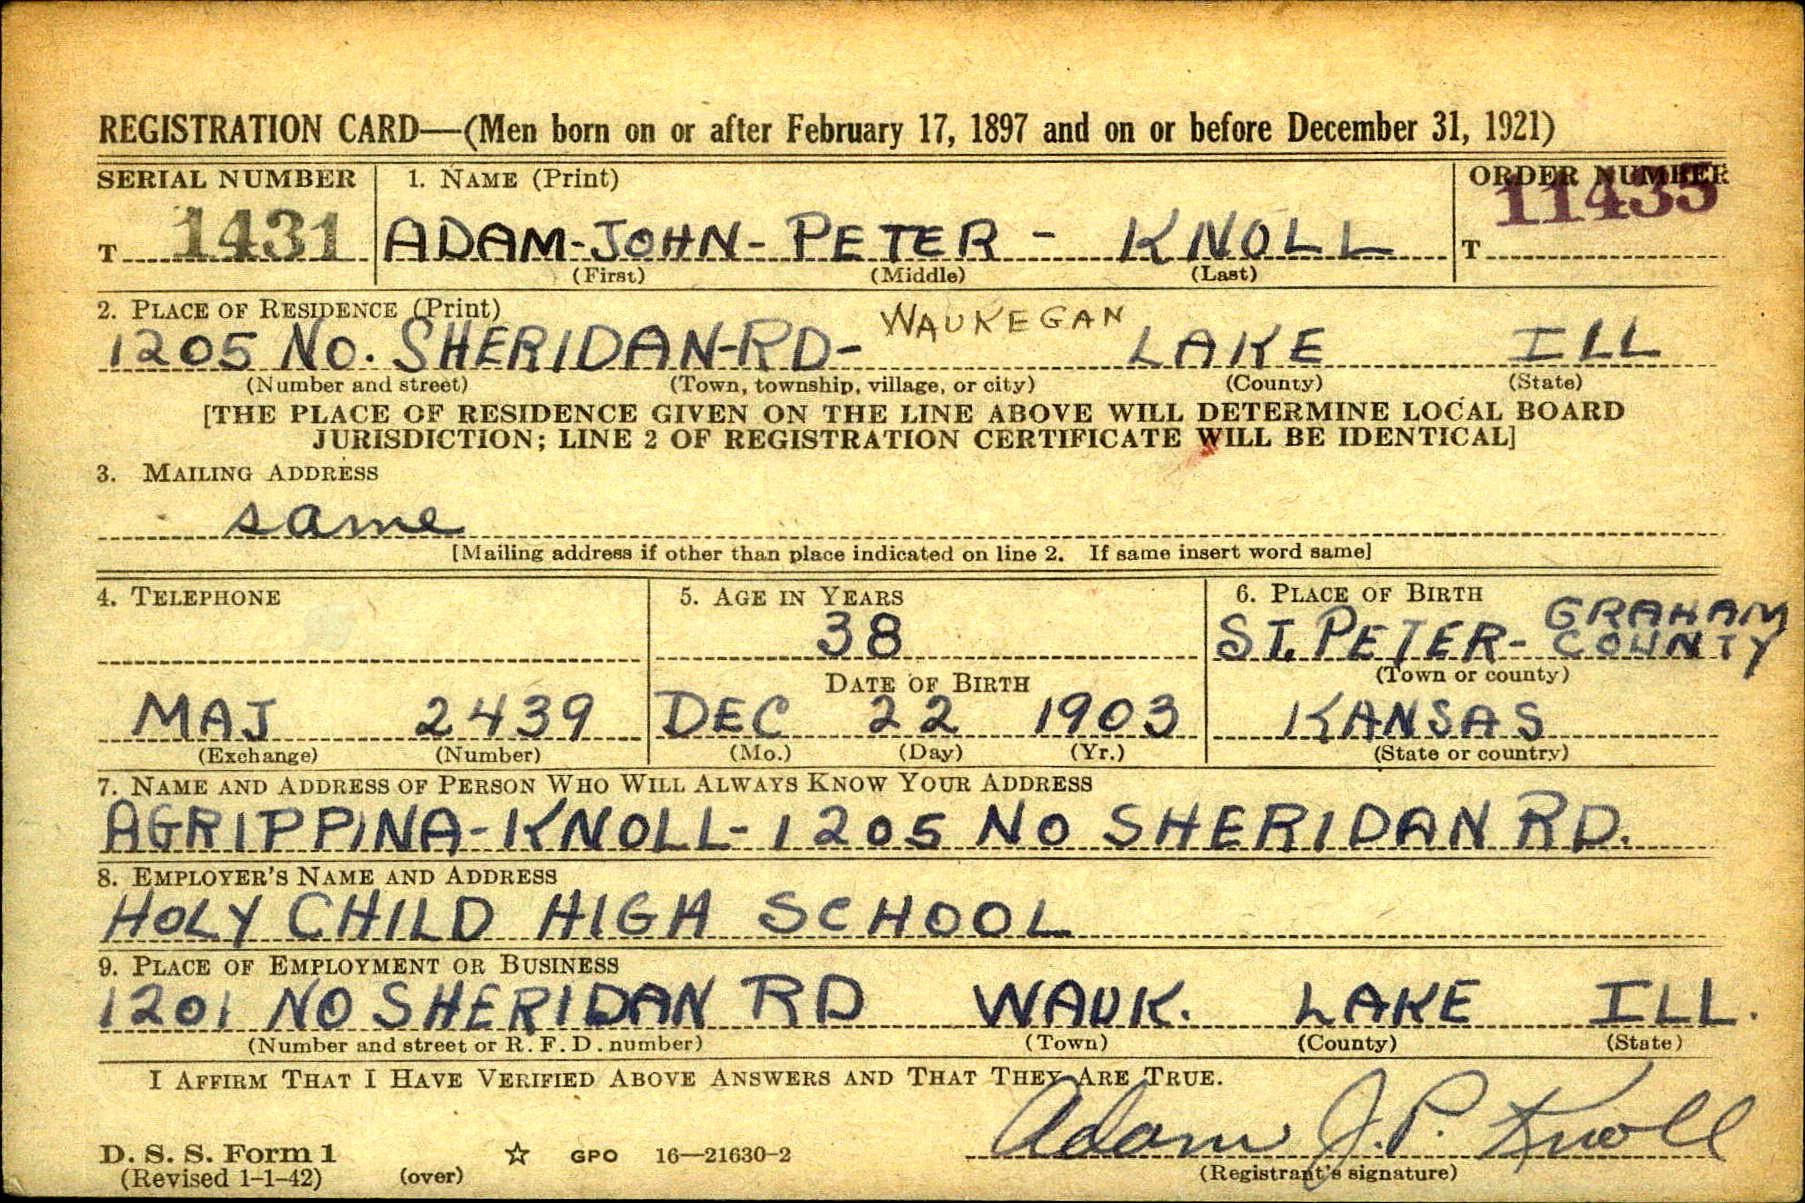 REGISTRATION CARD—(Men born on or after February 17, 1897 and on or before December 31, 1921)
SERIAL NUMBER 1. NAME (Print) ORDER NUMBER
T 1431 ADAM-JOHN-PETER - KNOLL T 11435
(First) (Middle) (Last)
2. PLACE OF RESIDENCE (Print)
1205 No. SHERIDAN-RD- WAUKEGAN LAKE ILL
(Number and street) (Town, township, village, or city) (County) (State)
[THE PLACE OF RESIDENCE GIVEN ON THE LINE ABOVE WILL DETERMINE LOCAL BOARD
JURISDICTION; LINE 2 OF REGISTRATION CERTIFICATE WILL BE IDENTICAL]
3. MAILING ADDRESS
same
[Mailing address if other than place indicated on line 2. If same insert word same]
4. TELEPHONE 5. AGE IN YEARS 6. PLACE OF BIRTH
38 ST. PETER- GRAHAM COUNTY
DATE OF BIRTH (Town or county)
MAJ 2439 DEC 22 1903 KANSAS
(Exchange) (Number) (Mo.) (Day) (Yr.) (State or country)
7. NAME AND ADDRESS OF PERSON WHO WILL ALWAYS KNOW YOUR ADDRESS
AGRIPPINA-KNOLL-1205 NO SHERIDAN RD.
8. EMPLOYER'S NAME AND ADDRESS
HOLY CHILD HIGH SCHOOL
9. PLACE OF EMPLOYMENT OR BUSINESS
1201 NO SHERIDAN RD WAUK. LAKE ILL.
(Number and street or R. F. D. number) (Town) (County) (State)
I AFFIRM THAT I HAVE VERIFIED ABOVE ANSWERS AND THAT THEY ARE TRUE.
Adam J.P. Knoll
D. S. S. Form 1 GPO 16—21630-2
(Revised 1-1-42) (over) (Registrant's signature)